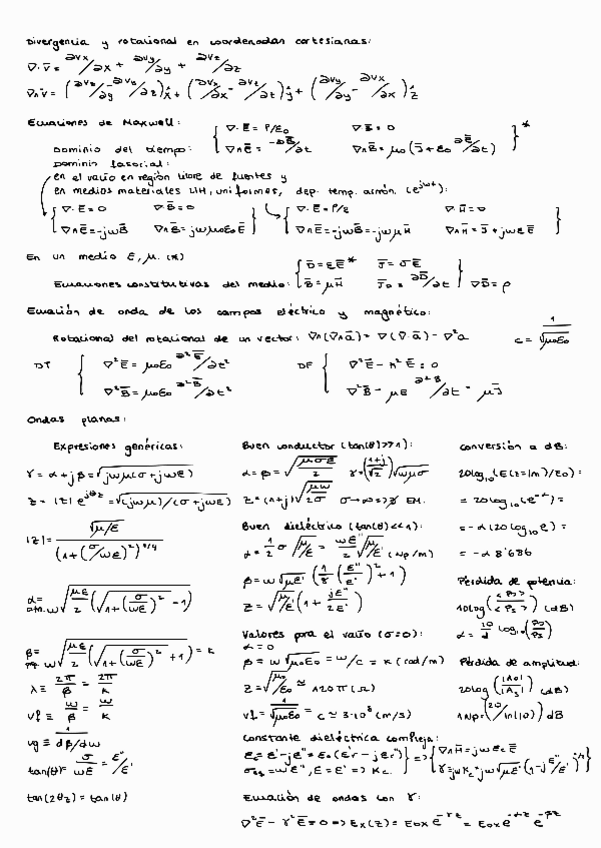 Divergencia y rotacional en coordenadas cartesianas:
∇·v̄ = ∂Vx/∂x + ∂Vy/∂y + ∂Vz/∂z
Ecuaciones de Maxwell:
Dominio del tiempo: { ∇·Ē = ρ/ε0   ∇·B̄ = 0
∇∧Ē = -∂B̄/∂t   ∇∧B̄ = μ0(J̄ + ε0 ∂Ē/∂t) }*
Dominio fasorial:
en el vacío en región libre de fuentes y
en medios materiales LIH, uniformes, dep. temp. armón. (e^jωt):
{ ∇·Ē = 0   ∇·B̄ = 0   { ∇·Ē = ρ/ε   ∇·H̄ = 0
∇∧Ē = -jωB̄   ∇∧B̄ = jωμ0ε0Ē }   ∇∧Ē = -jωB̄ = -jωμH̄   ∇∧H̄ = J̄ + jωεĒ }
En un medio ε, μ. (*) { D̄ = εĒ*   J̄ = σĒ
Ecuaciones constitutivas del medio: B̄ = μH̄   J̄D = ∂D̄/∂t } ∇D̄ = ρ
Ecuación de onda de los campos eléctrico y magnético:
Rotacional del rotacional de un vector: ∇∧(∇∧ā) = ∇(∇·ā) - ∇²a   c = 1/√μ0ε0
DT { ∇²Ē = μ0ε0 ∂²Ē/∂t²
∇²B̄ = μ0ε0 ∂²B̄/∂t²
DF { ∇²Ē - k²Ē = 0
Ondas planas:
Expresiones genéricas:
γ = α + jβ = √jωμ(σ + jωε)
z = |z| e^jθz = √(jωμ)/(σ + jωε)
|z| = √μ/ε / (1 + (σ/ωε)²)^1/4
α = ω√(με/2 (√(1 + (σ/ωε)²) - 1))
β = ω√(με/2 (√(1 + (σ/ωε)²) + 1)) = k
λ = 2π/β = 2π/k
vf = ω/β = ω/k
vg = 1/dβ/dω
tan(θ) = σ/ωε = ε''/ε'
tan(2θz) = tan(θ)
Buen conductor (tan(θ)>>1):
α = β = √(ωμσ/2)   γ = ((1+j)/√2) √ωμσ
z = (1+j)√(μω/2σ)
Buen dieléctrico (tan(θ)<<1):
α = 1/2 σ √μ/ε' = ωε''/2 √μ/ε' (Np/m)
β = ω√με' (1/8 (ε''/ε')² + 1)
z = √μ/ε' (1 + jε''/2ε')
Valores para el vacío (σ=0):
α = 0
β = ω√μ0ε0 = ω/c = k (rad/m)
z = √μ0/ε0 ≃ 120π (Ω)
vf = 1/√μ0ε0 = c ≃ 3·10⁸ (m/s)
Constante dieléctrica compleja:
εc = ε' - jε'' = ε0(ε'r - jεr'') } => { ∇∧H̄ = jωεcĒ
Ecuación de ondas con γ:
∇²Ē - γ²Ē = 0 => Ex(z) = E0x e^-γz = E0x e^-αz e^-βz
Conversión a dB:
20log10(E(z=1m)/E0) =
= 20log10(e^-α) =
= -α(20log10 e) =
= -α 8'686
Pérdida de potencia:
α = 10/d log10(P0/P2)
Pérdida de amplitud:
20log(|A0|/|As|) (dB)
1Np = (20/ln(10)) dB